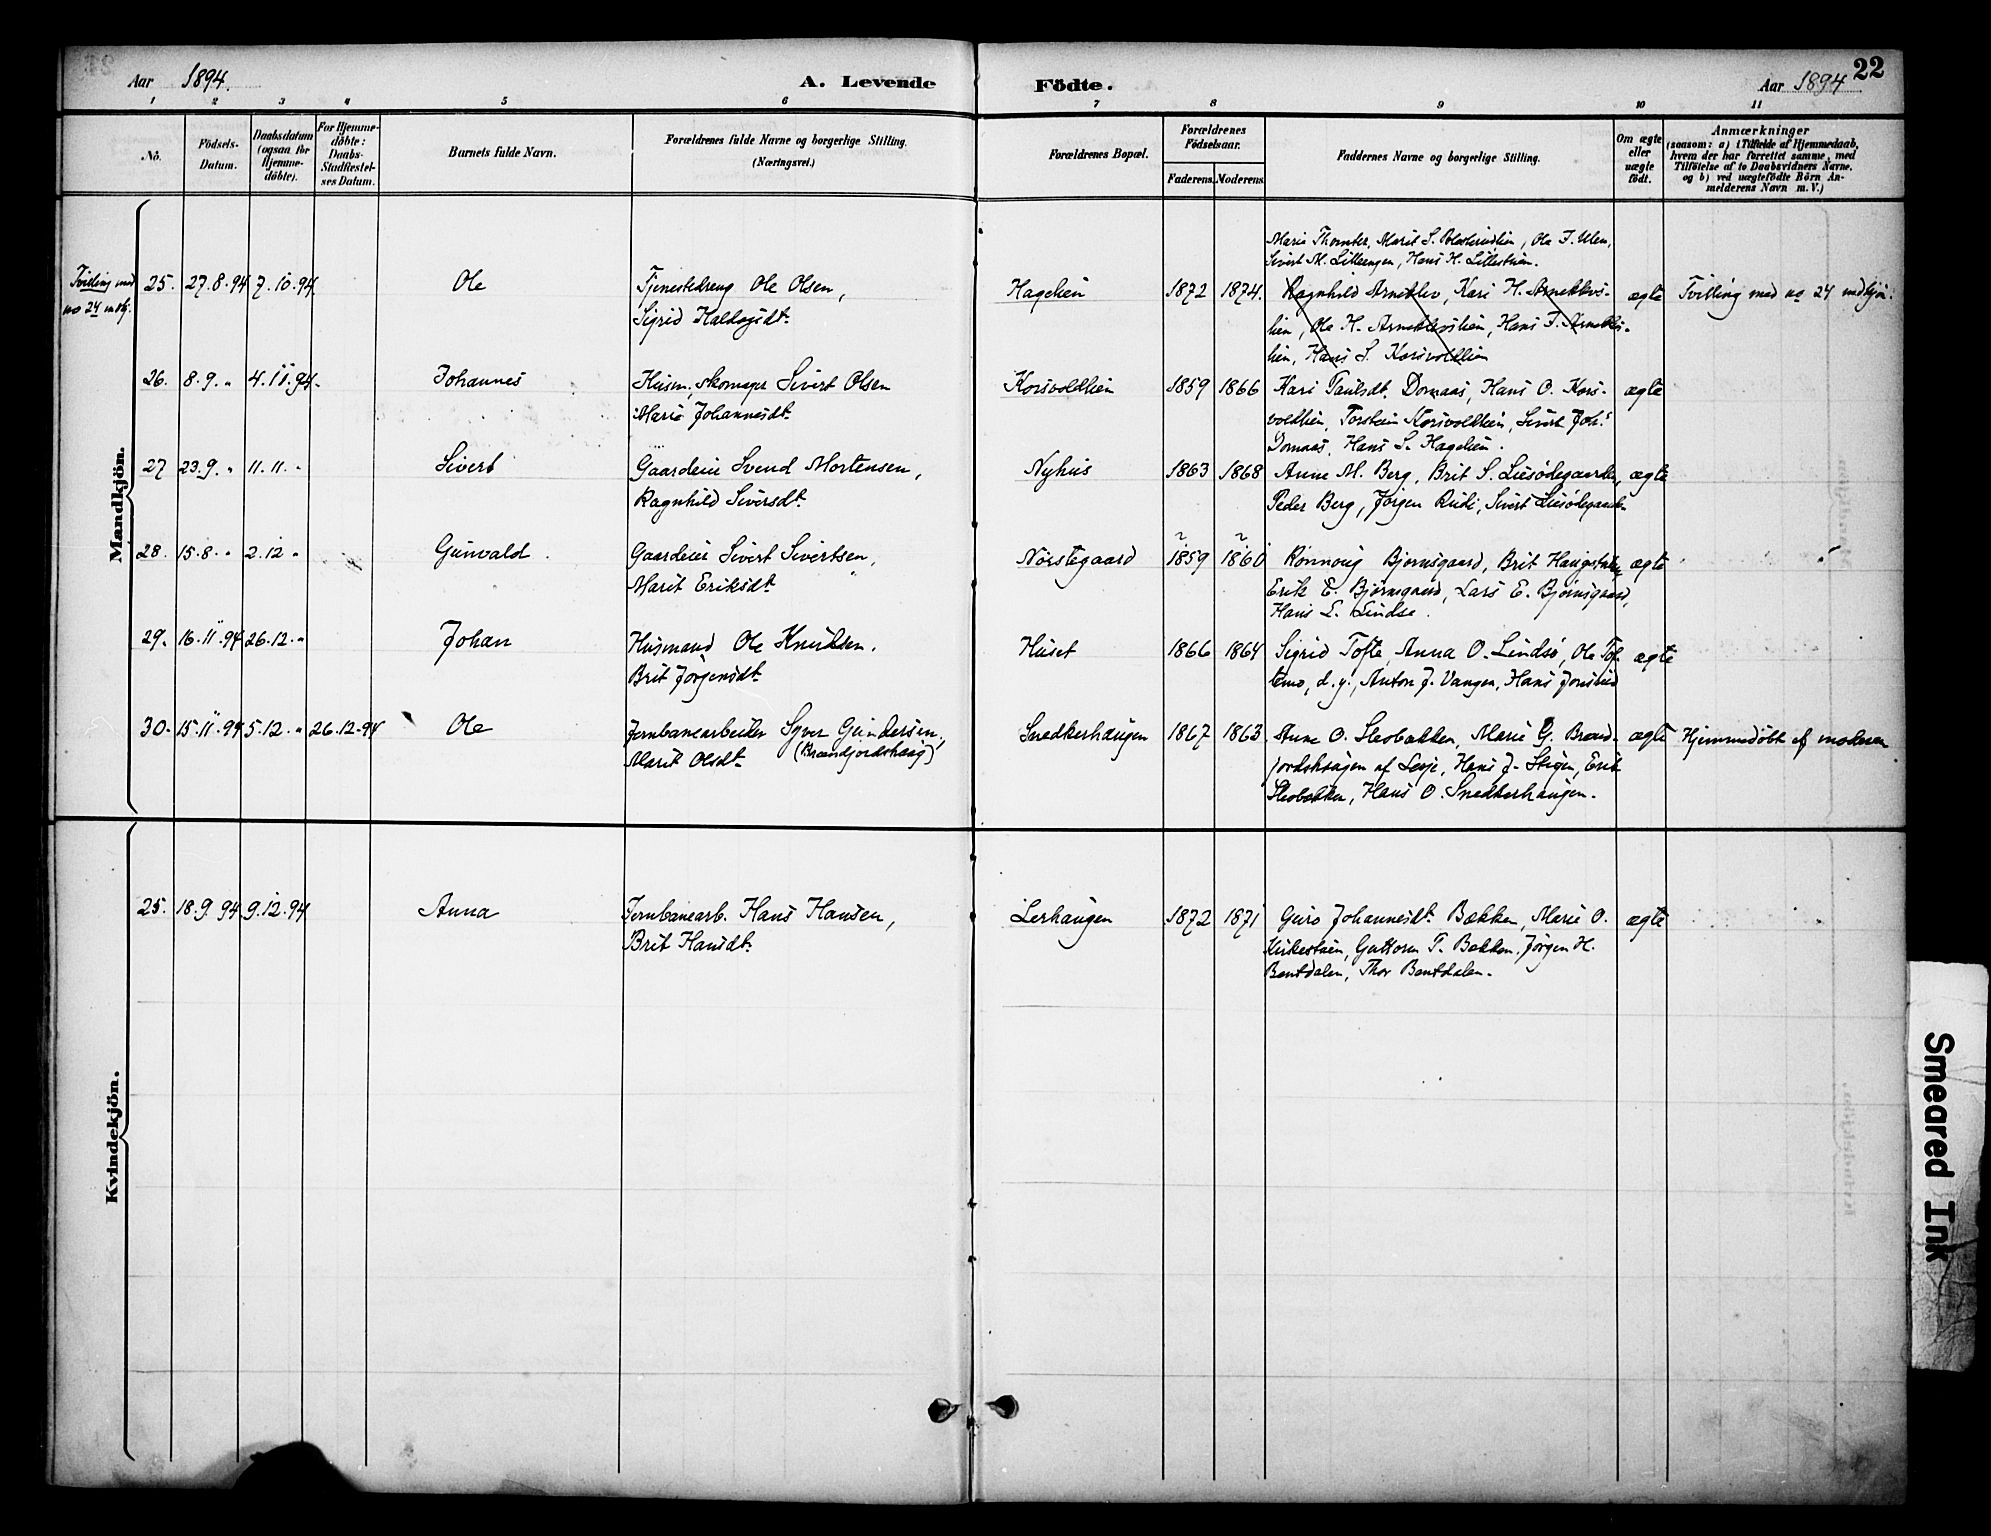 Aar 1894. A. Levende Födte. Aar 1894 22
1 2 3 4 5 6 7 8 9 10 11
No.
Födsels-
Datum.
Daabsdatum
(ogsaa for
Hjemme-
döbte).
For Hjemme-
döbte:
Daabs-
Stadfæstel-
ses Datum.
Barnets fulde Navn.
Forældrenes fulde Navne og borgerlige Stilling.
(Næringsvei.)
Forældrenes Bopæl.
Forældrenes
Födselsaar.
Faderens. Moderens.
Faddernes Navne og borgerlige Stilling.
Om ægte
eller
uægte
födt.
Anmærkninger
(saasom: a) i Tilfælde af Hjemmedaab,
hvem der har forrettet samme, med
Tilföielse af to Daabsvidners Navne,
og b) ved uægtefödte Börn An-
melderens Navn m. V.)
Mandkjön.
Tvilling med
no 24 mdkj.
25. 27.8.94 7.10.94 Ole
Tjenestedreng Ole Olsen,
Sigrid Halvogsdt.
Hagelien 1872 1874.
Marie Thomter, Marit S. , Ole J. Ulen,
Sivert M. Lilleengen, Hans H. Lillestuen.
Ragnhild Arneklev, Kari H. Arneklevs-
lien, Ole H. Arneklevslien, Hans J. Arneklevs-
lien, Hans S. Korsvoldlien
ægte Tvilling med no 24 mdkjøn.
26. 8.9. " 4.11.94. Johannes
Husm., skomager Sivert Olsen
Marie Johannesdt.
Korsvoldlien 1859 1866
Kari Paulsdt. Domaas, Hans O. Kors-
voldlien, Torstein Korsvoldlien, Sivert Joh.s
Domaas, Hans S. Hagelien.
ægte
27 23.9. " 11.11. " Sivert
Gaardeier Svend Mortensen,
Ragnhild Siversdt.
Nyhus 1863 1868
Anne M. Berg, Brit S. Liesødegaarden,
Peder Berg, Jørgen Rudi, Sivert Liesødegaarden
ægte
28. 15.8. " 2.12 " Gunvald
Gaardeier Sivert Sivertsen,
Marit Eriksdt.
Norstegaard 1859 1860
Rønnoug Bjørnsgaard, Brit Haugstulen,
Erik E. Bjørnsgaard, Lars E. Bjørnsgaard,
Hans L. Lindsø.
ægte
29. 16.11.94 26.12. " Johan
Husmand Ole Knudsen,
Brit Jørgensdt.
Huset 1866 1864
Sigrid Tofte, Anna O. Lindsø, Ole Tof-
temo, d.y., Anton J. Vangen, Hans
ægte
30. 15.11.94 5.12. " 26.12.94 Ole
Jernbanearbeider Syver Gundersen,
Marit Olsdt. (Brændjordshaug)
Snedkerhaugen 1867 1863
Anne O. Slesbakken, Marie G. Brænd-
jordshaugen af Lesje, Hans J. Stigen, Erik
Slesbakken, Hans O. Snedkerhaugen.
ægte Hjemmedøbt af moderen
Kvindekjön.
25. 18.9.94 9.12.94 Anna
Jernbanearb. Hans Hansen,
Brit Hansdt.
Lerhaugen 1872 1871
Guro Johannesdt. Bækken, Marie O.
Kirkestuen, Guttorm T. Bækken, Jørgen H.
Bentdalen, Thor Bentdalen.
ægte
Smeared Ink